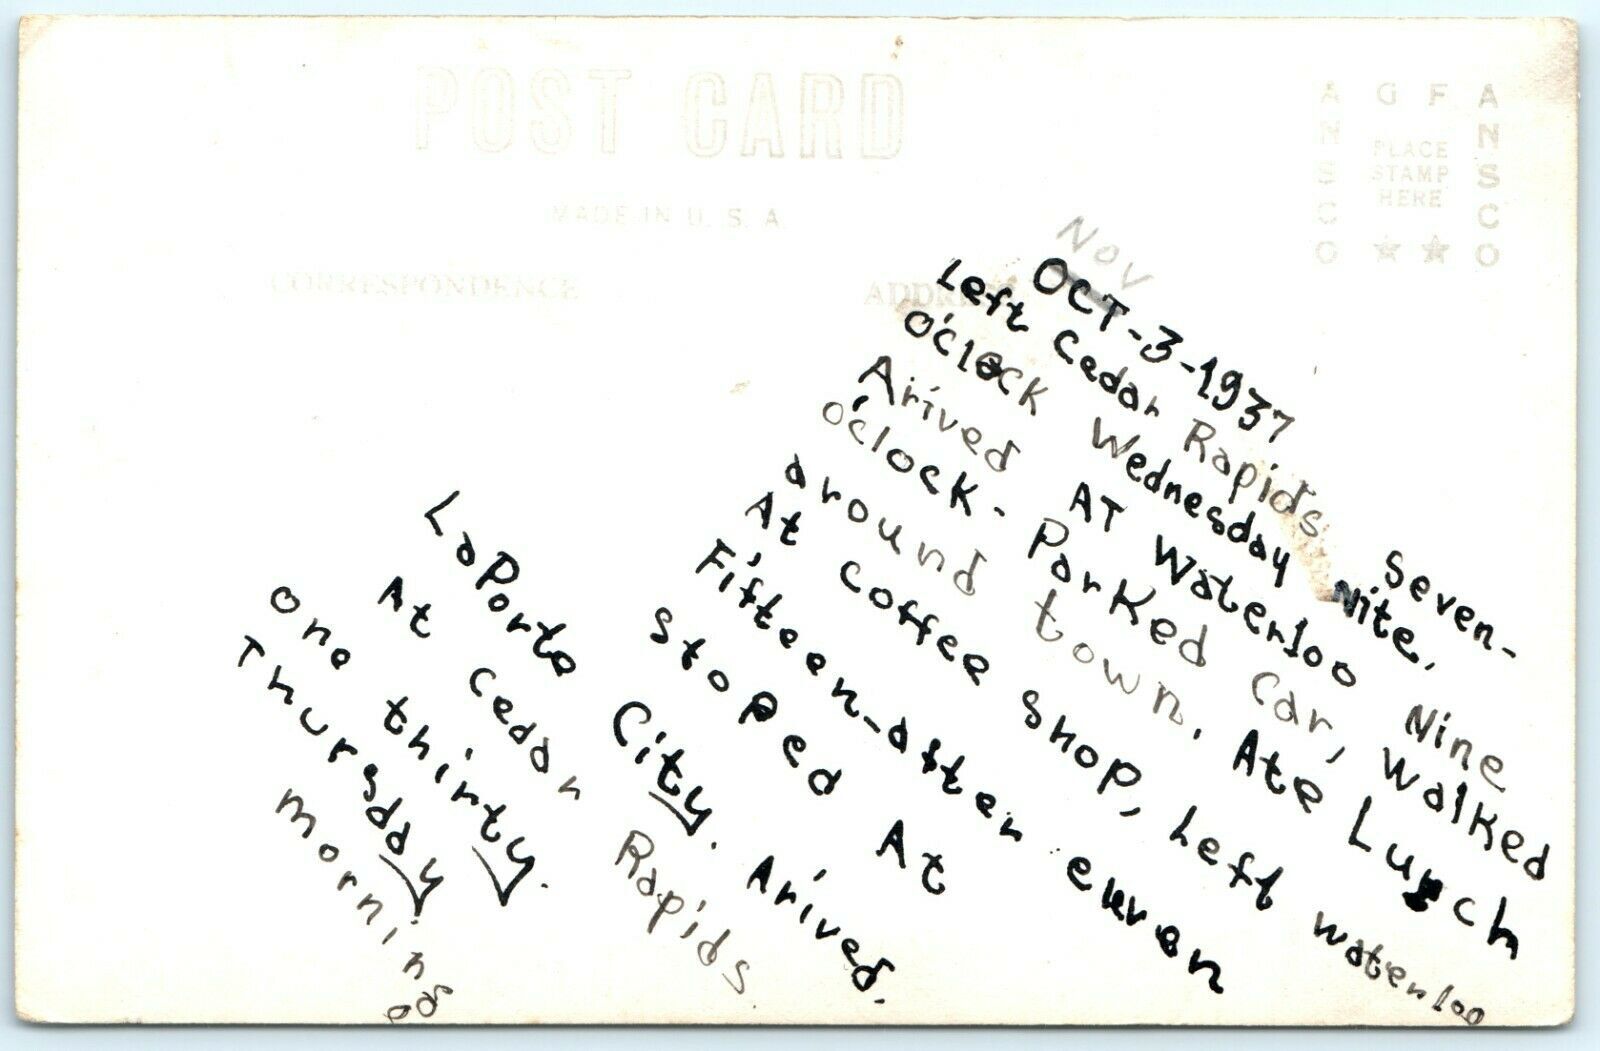 POST CARD
MADE IN U. S. A.
CORRESPONDENCE
ADDRESS
A G F A
ANSCO
ANSCO
PLACE
STAMP
HERE
Nov
OCT-3-1937
Left Cedar Rapids Seven-
O'clock Wednesday Nite.
Arived AT Waterloo Nine
O'clock. Parked Car, Walked
around town. Ate Lunch
At Coffee Shop, Left Waterloo
Fifteen-after eleven
Stoped At
LaPorte City. Arived.
At Cedar Rapids.
One thirty.
Thursday
Morning